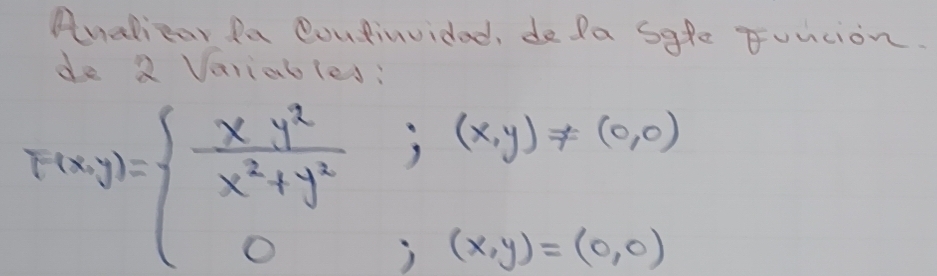 Analizar la Continuidad. de la sgte Función.
de 2 Variables:
F(x,y)= { x y² / x²+y² ; (x,y) ≠ (0,0)
0 ; (x,y) = (0,0)